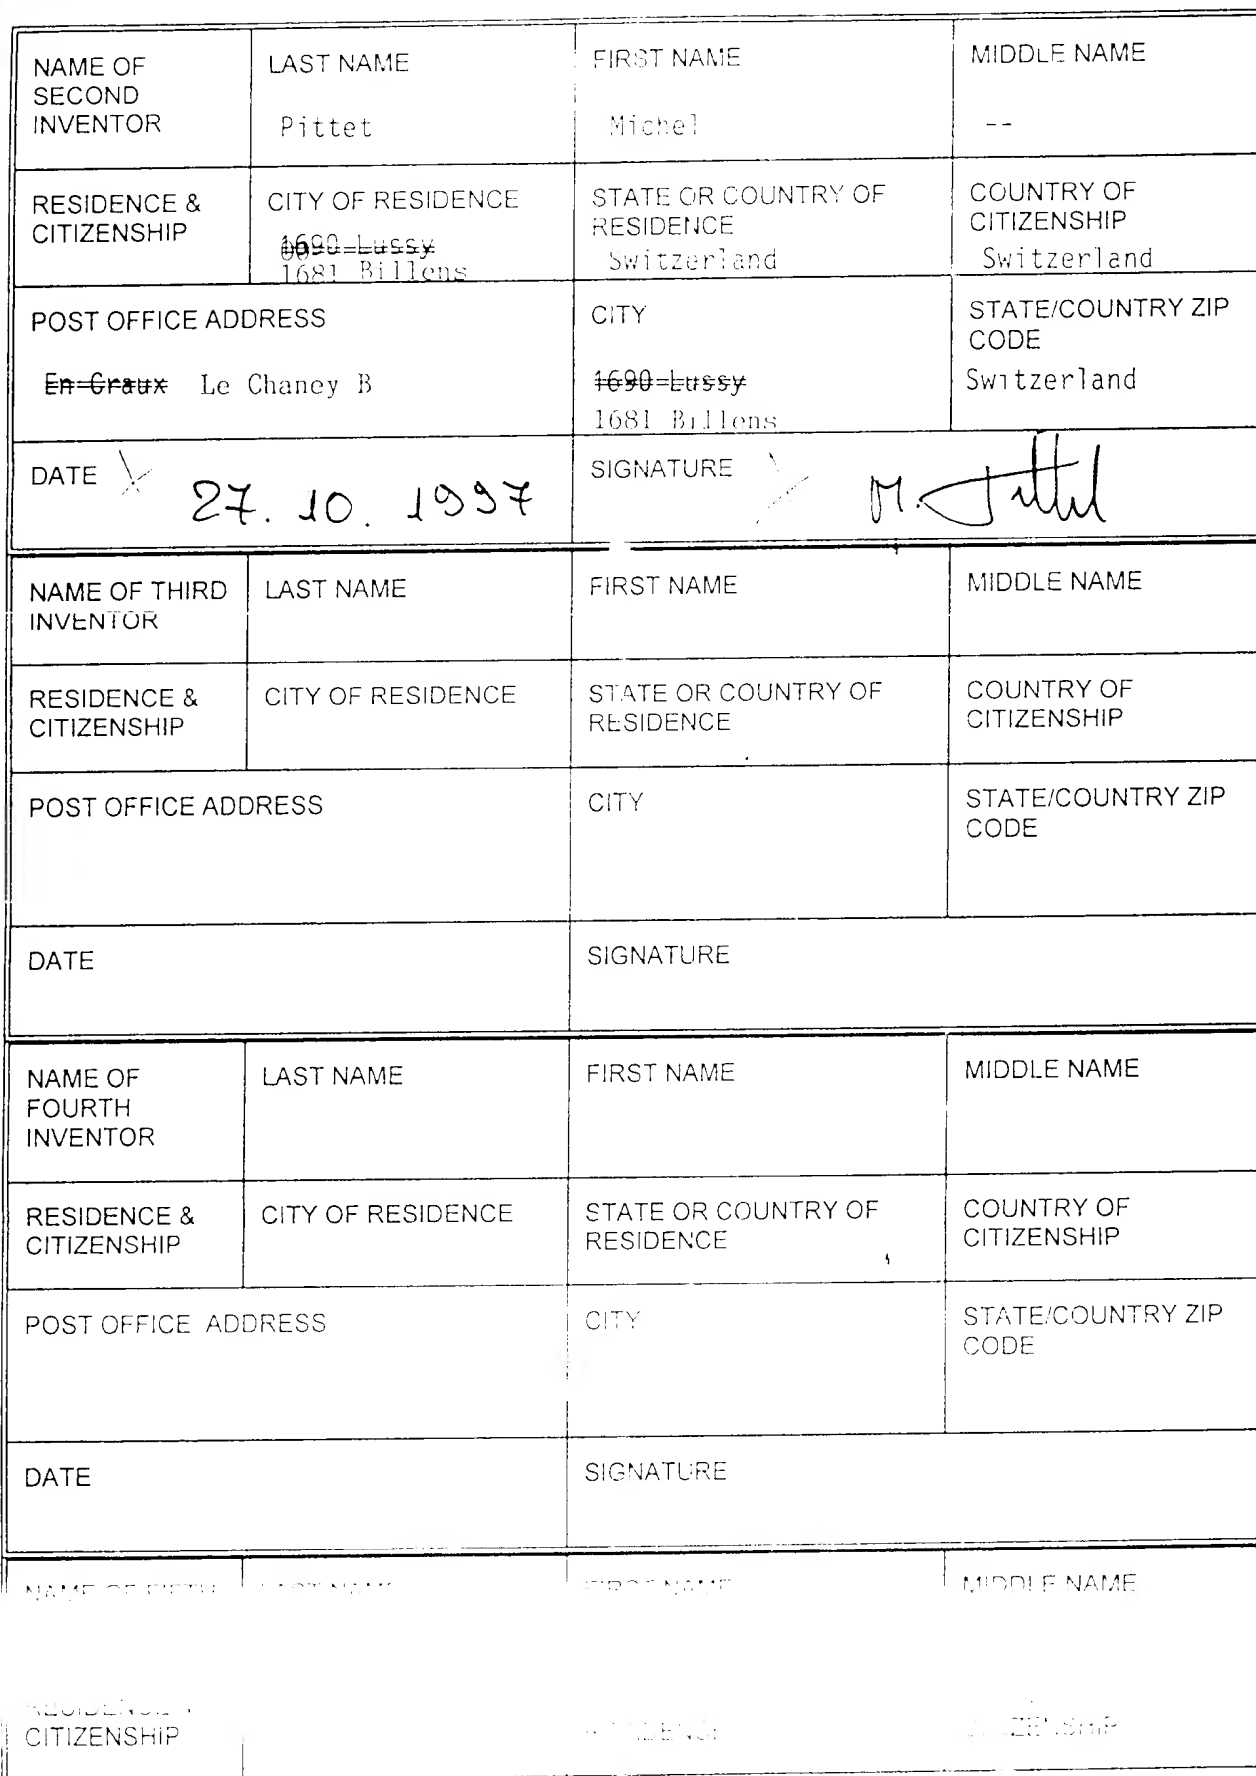 NAME OF SECOND INVENTOR
LAST NAME
Pittet
FIRST NAME
Michel
MIDDLE NAME
--
RESIDENCE & CITIZENSHIP
CITY OF RESIDENCE
1690 Lussy
1681 Billens
STATE OR COUNTRY OF RESIDENCE
Switzerland
COUNTRY OF CITIZENSHIP
Switzerland
POST OFFICE ADDRESS
En Craux Le Chaney B
CITY
1690 Lussy
1681 Billens
STATE/COUNTRY ZIP CODE
Switzerland
DATE
27.10.1997
SIGNATURE
M. Pittet
NAME OF THIRD INVENTOR
LAST NAME
FIRST NAME
MIDDLE NAME
RESIDENCE & CITIZENSHIP
CITY OF RESIDENCE
STATE OR COUNTRY OF RESIDENCE
COUNTRY OF CITIZENSHIP
POST OFFICE ADDRESS
CITY
STATE/COUNTRY ZIP CODE
DATE
SIGNATURE
NAME OF FOURTH INVENTOR
LAST NAME
FIRST NAME
MIDDLE NAME
RESIDENCE & CITIZENSHIP
CITY OF RESIDENCE
STATE OR COUNTRY OF RESIDENCE
COUNTRY OF CITIZENSHIP
POST OFFICE ADDRESS
CITY
STATE/COUNTRY ZIP CODE
DATE
SIGNATURE
NAME OF FIFTH
LAST NAME
FIRST NAME
MIDDLE NAME
CITIZENSHIP